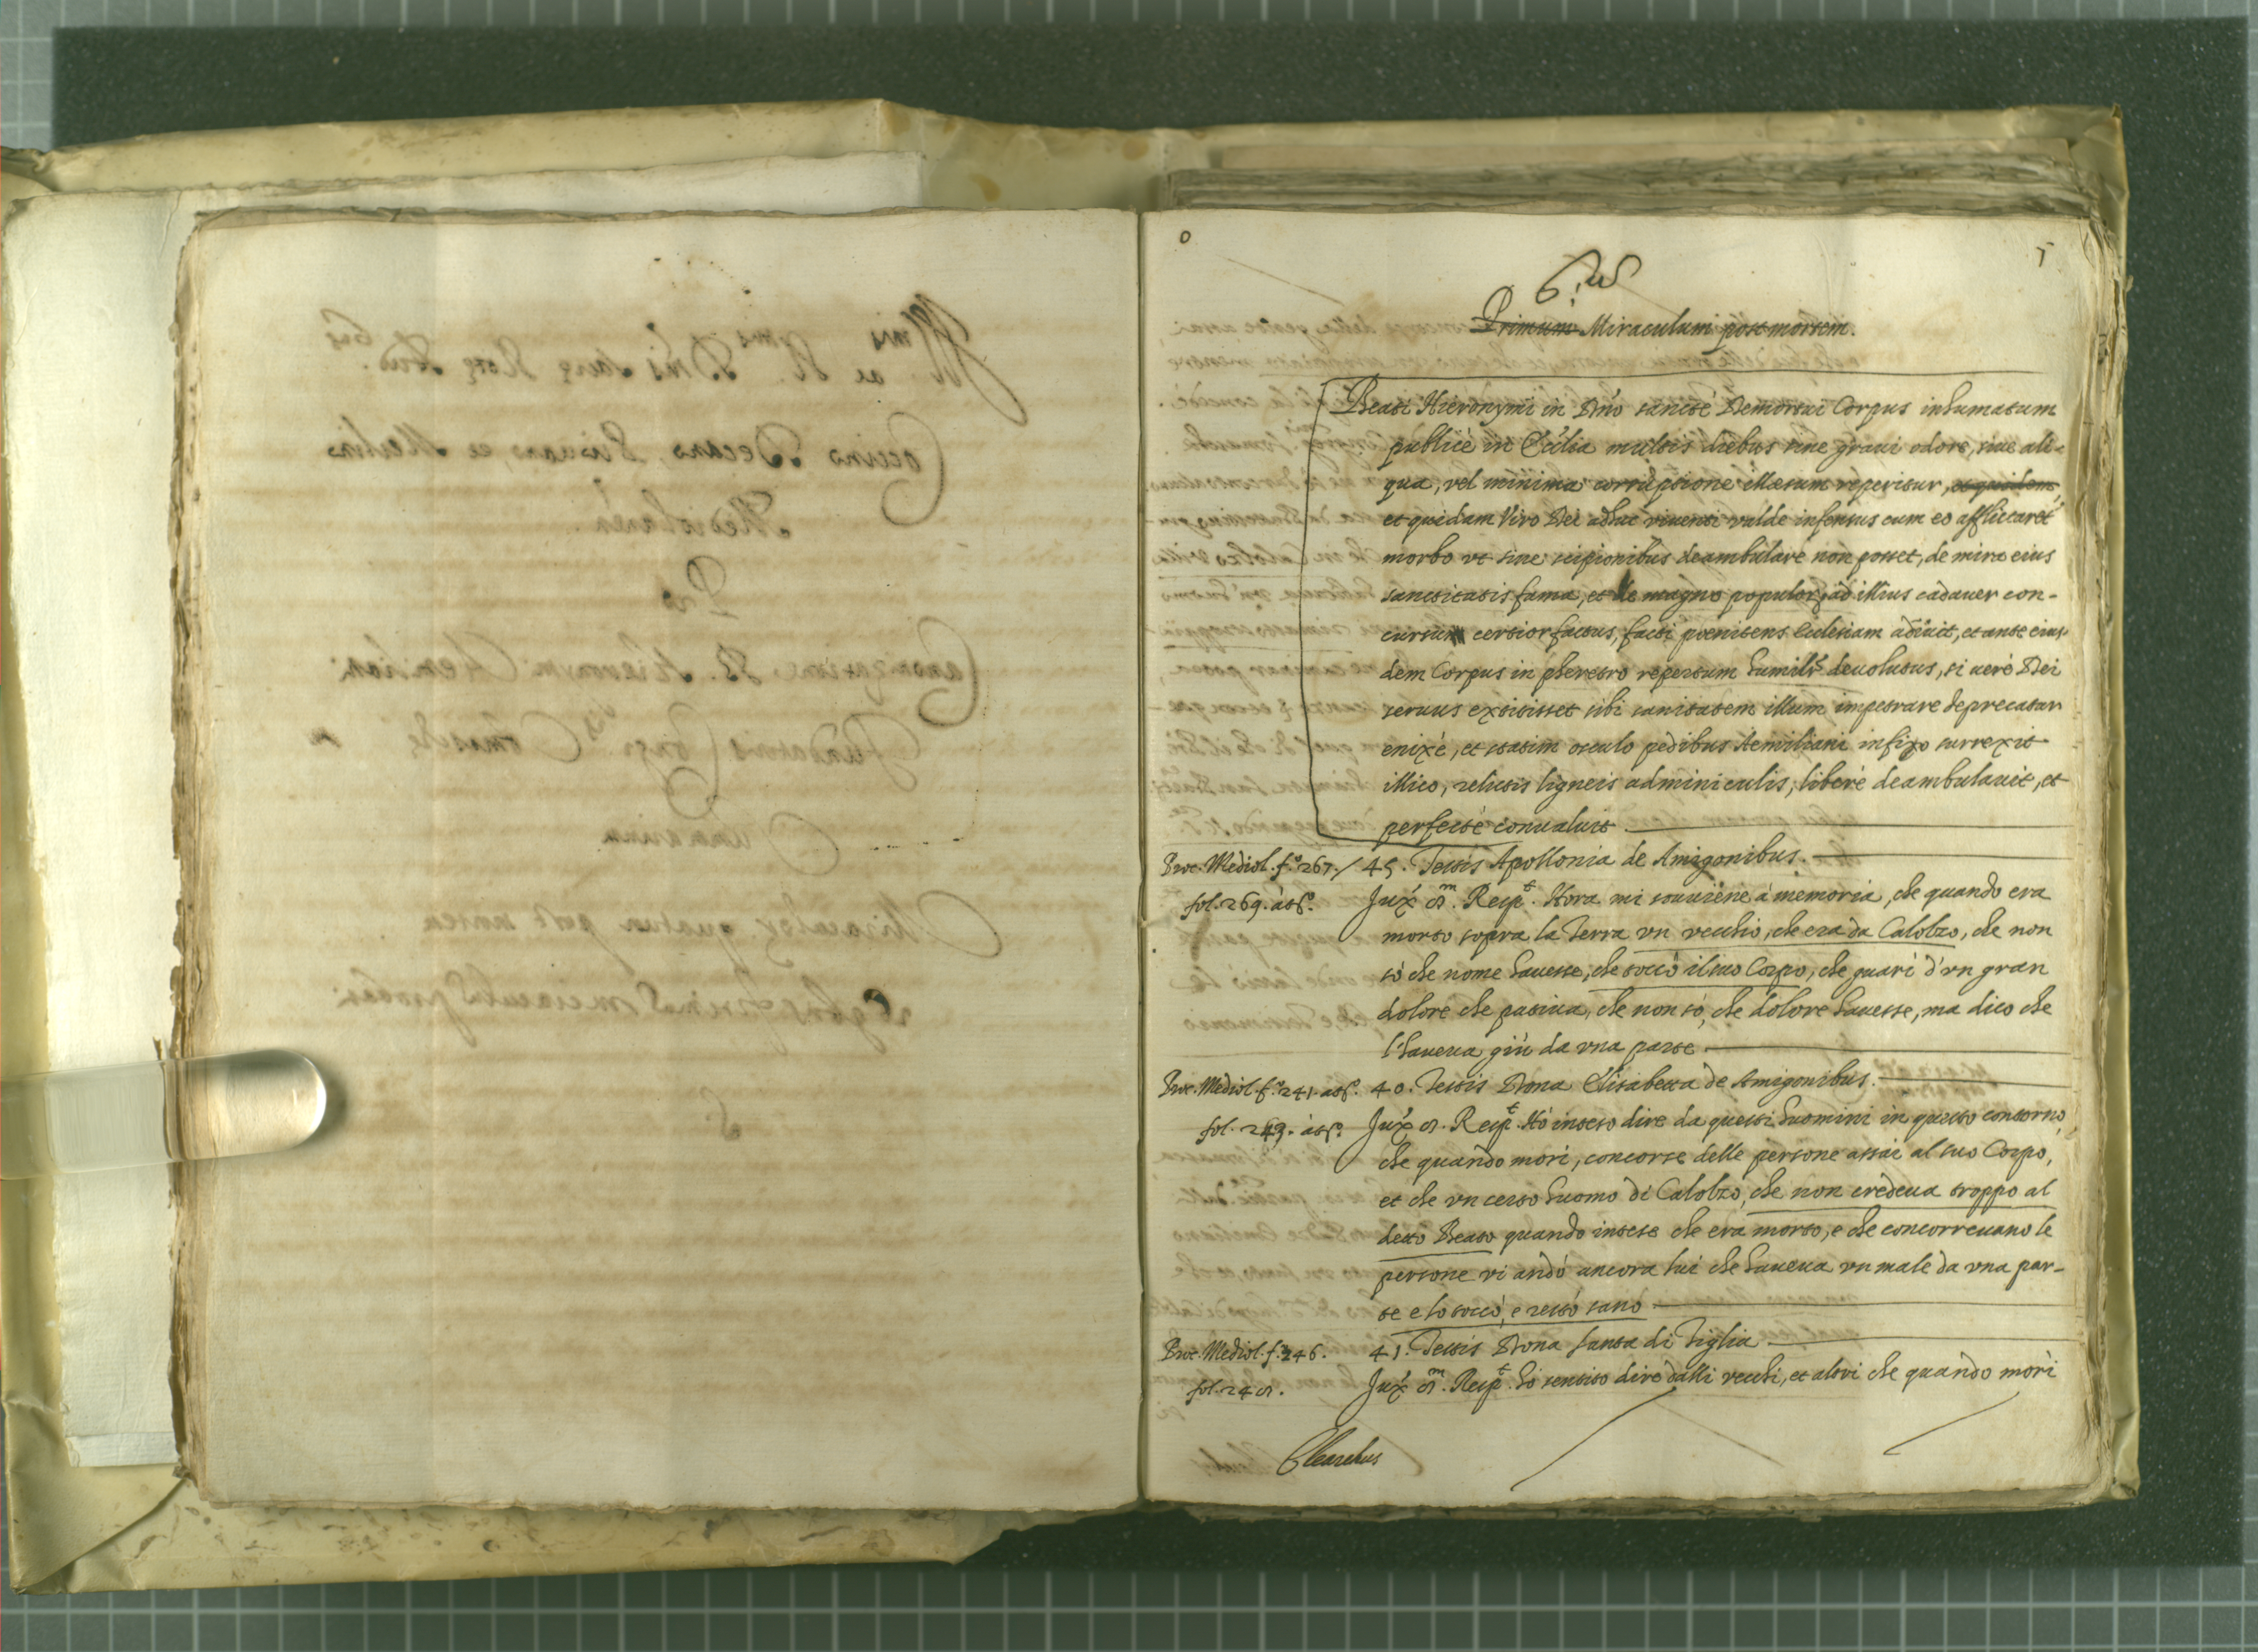 6.us
Primum Miraculum post mortem.
Beati Hieronymi in Dño sanctè Demortui Corpus inhumatum
publicè in Ecclia multis diebus sine graui odore, siue ali-
qua, vel minima corruptione illæsum reperitur, et quidem,
et quidam Viro Dei adhuc viuenti valde infensus cum eo afflictaret
morbo vt sine scipionibus deambulare non posset, de mira eius
sanctitatis fama, et de magno populor ad illius cadauer con-
cursu certior factus, facti poenitens Ecclesiam adiuit, et ante eius-
dem Corpus in pheretro repertum humilr deuolutus, si uerè Dei
seruus extitisset sibi sanitatem illum impetrare deprecatur
enixè, et statim osculo pedibus Aemiliani infixo surrexit
illico, relictis ligneis adminiculis, liberè deambulauit, et
perfectè conualuit
Proc. Mediol. f.º 267. / 45. Testis Apollonia de Amigonibus.
fol. 269. à tº. Jux.ª 9.m Resp.t Hora mi souuiene à memoria, che quando era
morto sopra la Terra vn vecchio, che era da Calolzo, che non
sò che nome hauesse, che toccò il suo Corpo, che guarì d'vn gran
dolore che patiua, che non sò, che dolore hauesse, ma dico che
l'haueua giù da vna parte
Proc. Mediol. f.º 241. à tº. 40. Testis Dona Elisabetta de Amigonibus.
fol. 243. à tº. Jux.ª 9. Resp.t Hò inteso dire da questi huomini in questo contorno,
che quando morì, concorse delle persone assai al suo Corpo,
et che vn certo huomo di Calolzo, che non credeua troppo al
detto Beato quando intese che era morto, e che concorreuano le
persone vi andò ancora lui che haueua vn male da vna par-
te e lo toccò, e restò sano
Proc. Mediol. f.º 246. 41. Testis Dona Santa di Tiglia
fol. 249. Jux.ª 9.m Resp.t hò sentito dire dalli vecchi, et altri che quando morì